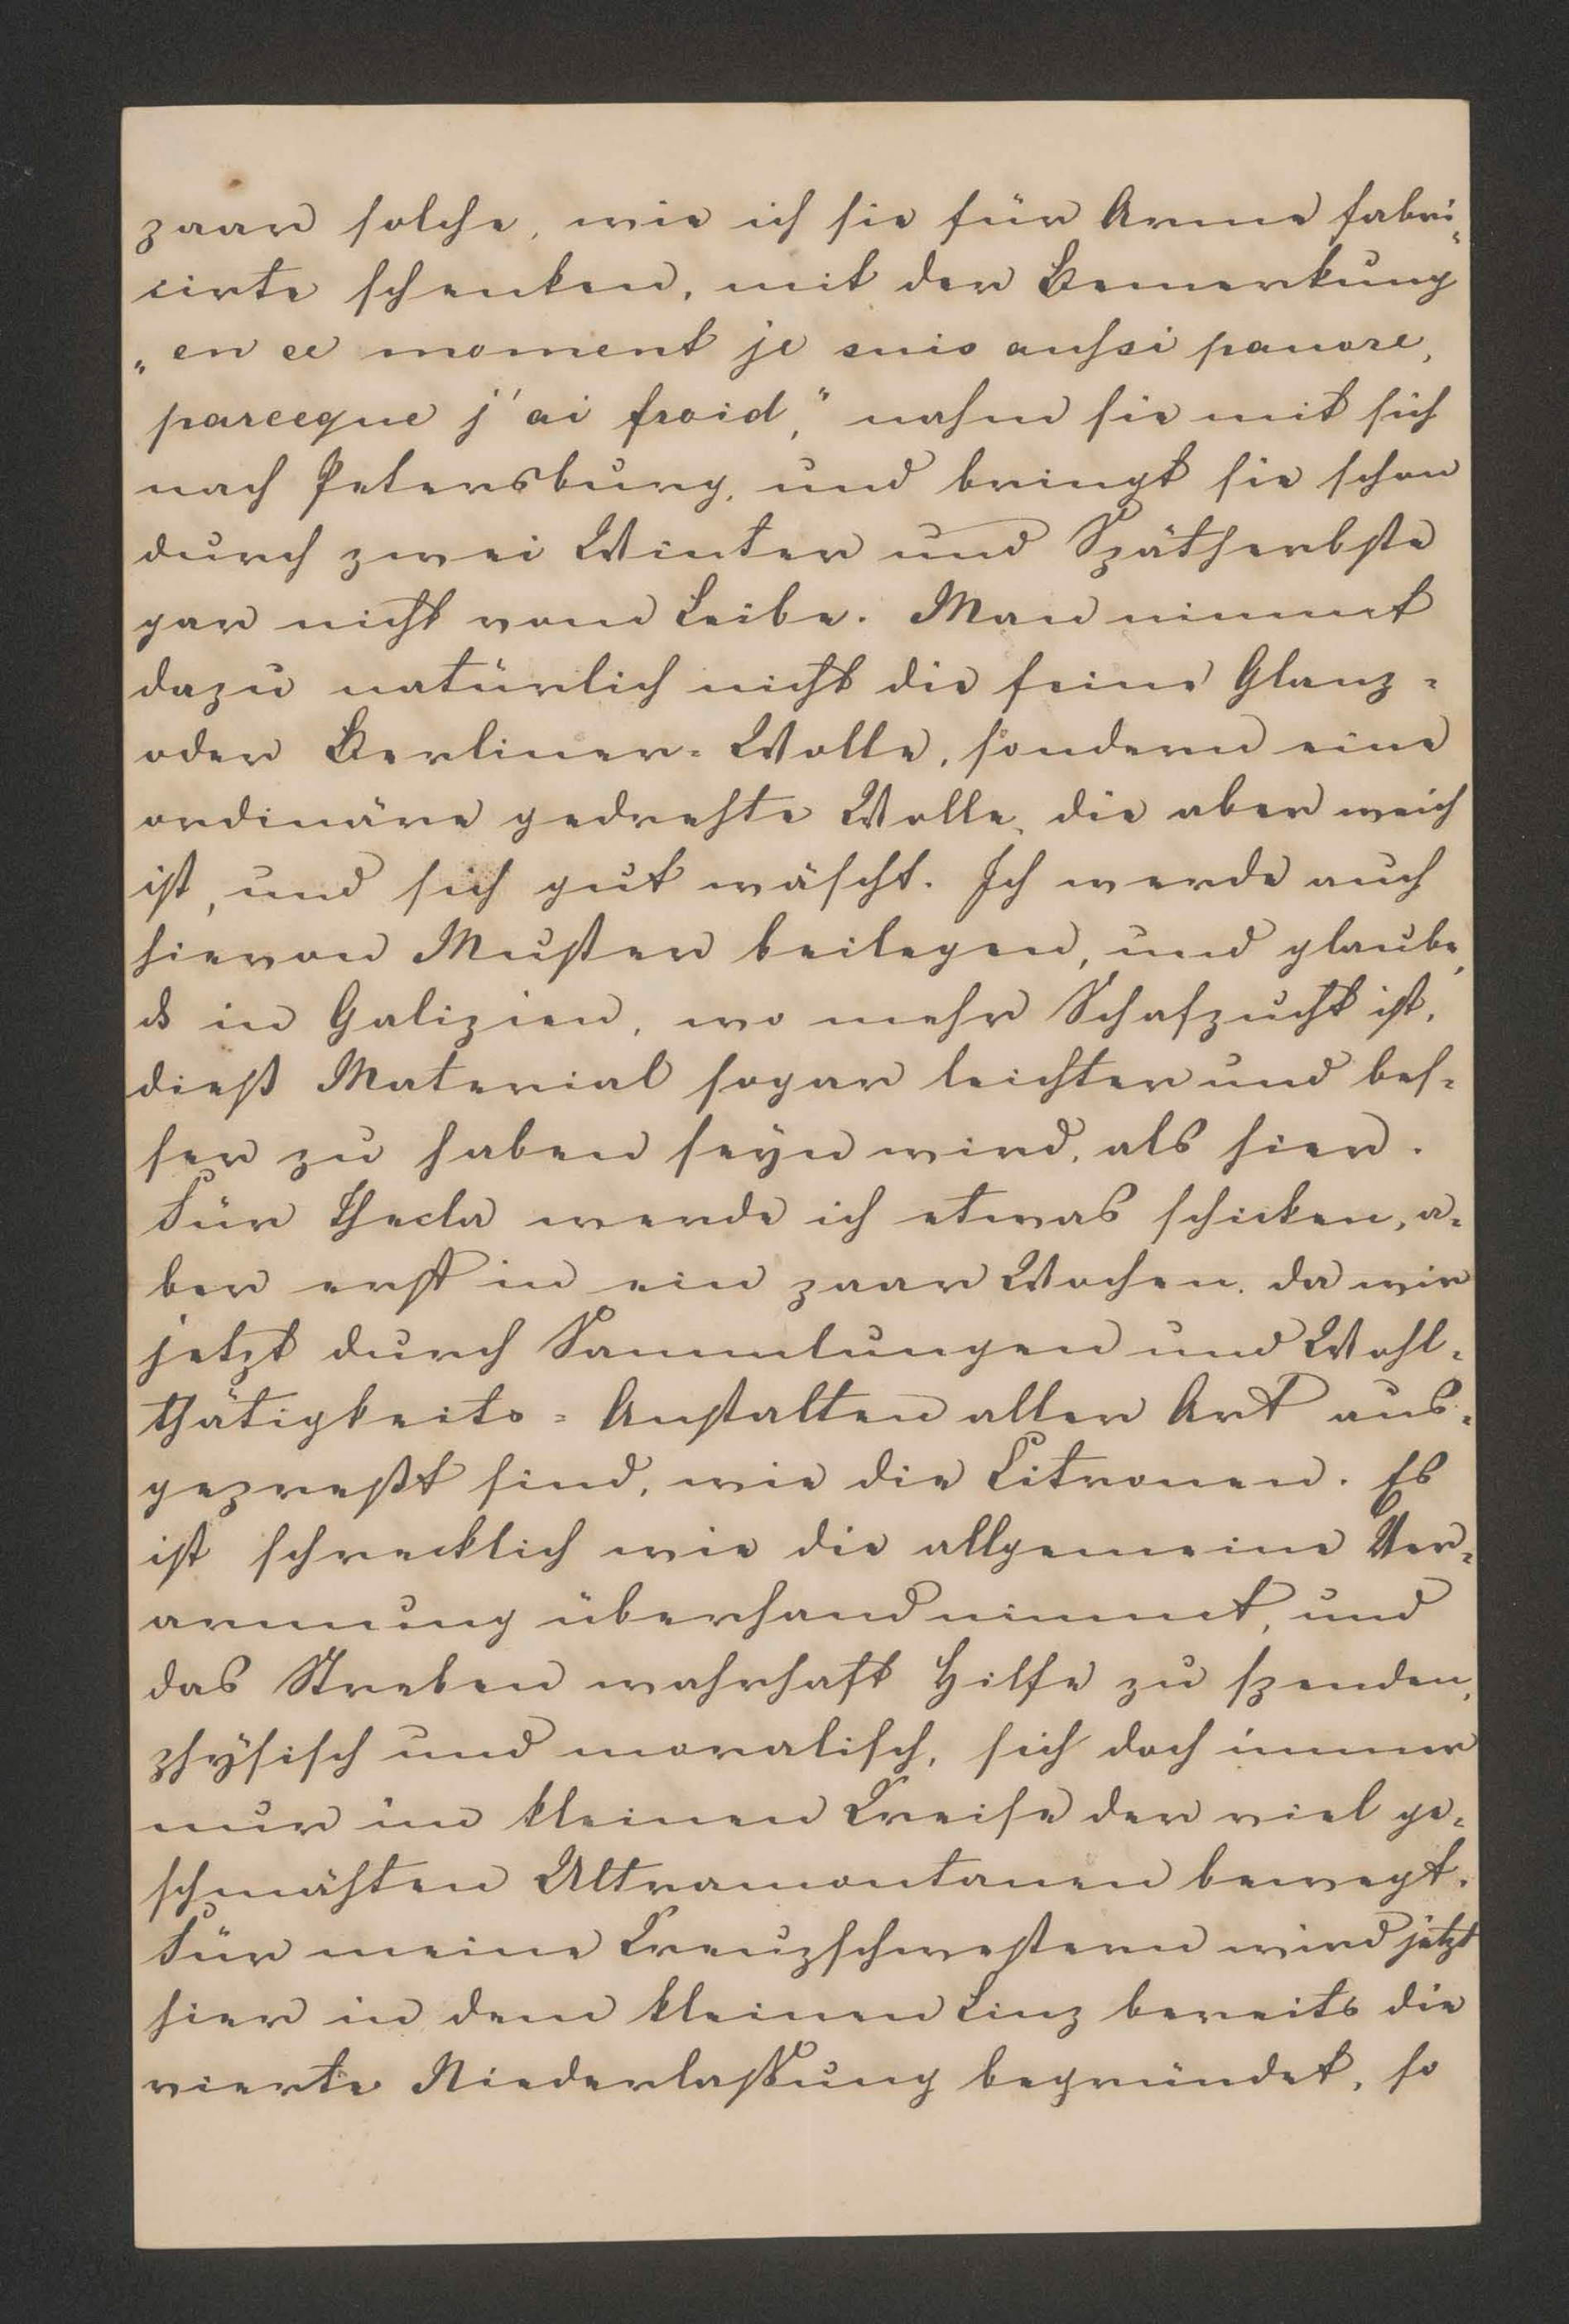 paar solche, wie ich sie für Arme fabri„
cirte schenken, mit der Bemerkung
„en ce moment je suis aussi pauvre,
parceque j'ai froid," nahm sie mit sich
nach Petersburg, und bringt sie schon
durch zwei Winter und Spätherbste
gar nicht vom Leibe. Man nimmt
dazu natürlich nicht die feine Glanz-
oder Berliner-Wolle, sondern eine
ordinäre gedrehte Wolle, die aber weich
ist, und sich gut wäscht. Ich werde auch
hievon Muster beilegen, und glaube,
ds in Galizien, wo mehr Schafzucht ist,
dieß Material sogar leichter und bes-
ser zu haben seyn wird, als hier.
Für Thecla werde ich etwas schicken, a-
ber erst in ein paar Wochen, da wir
jetzt durch Sammlungen und Wohl-
thätigkeits-Anstalten aller Art aus-
gepreßt sind, wie die Citronen. Es
ist schrecklich wie die allgemeine Ver-
armung überhand nimmt, und
das Streben wahrhaft Hilfe zu spenden,
physisch und moralisch, sich doch immer
nur im kleinen Kreise der viel ge-
schmähten Ultramontanen bewegt.
Für meine Kreuzschwestern wird jetzt
hier in dem kleinen Linz bereits die
vierte Niederlassung begründet, so